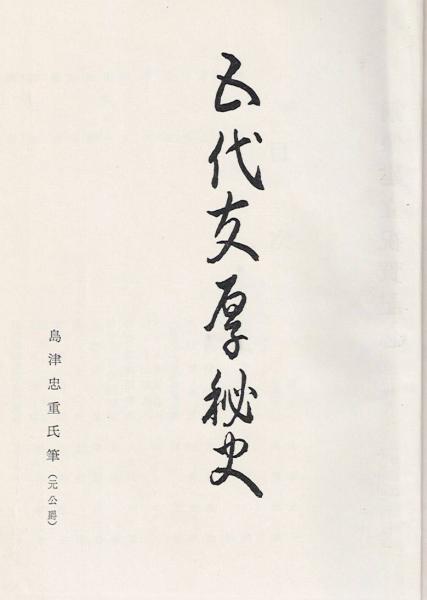 五代友厚秘史
島津忠重氏筆(元公爵)